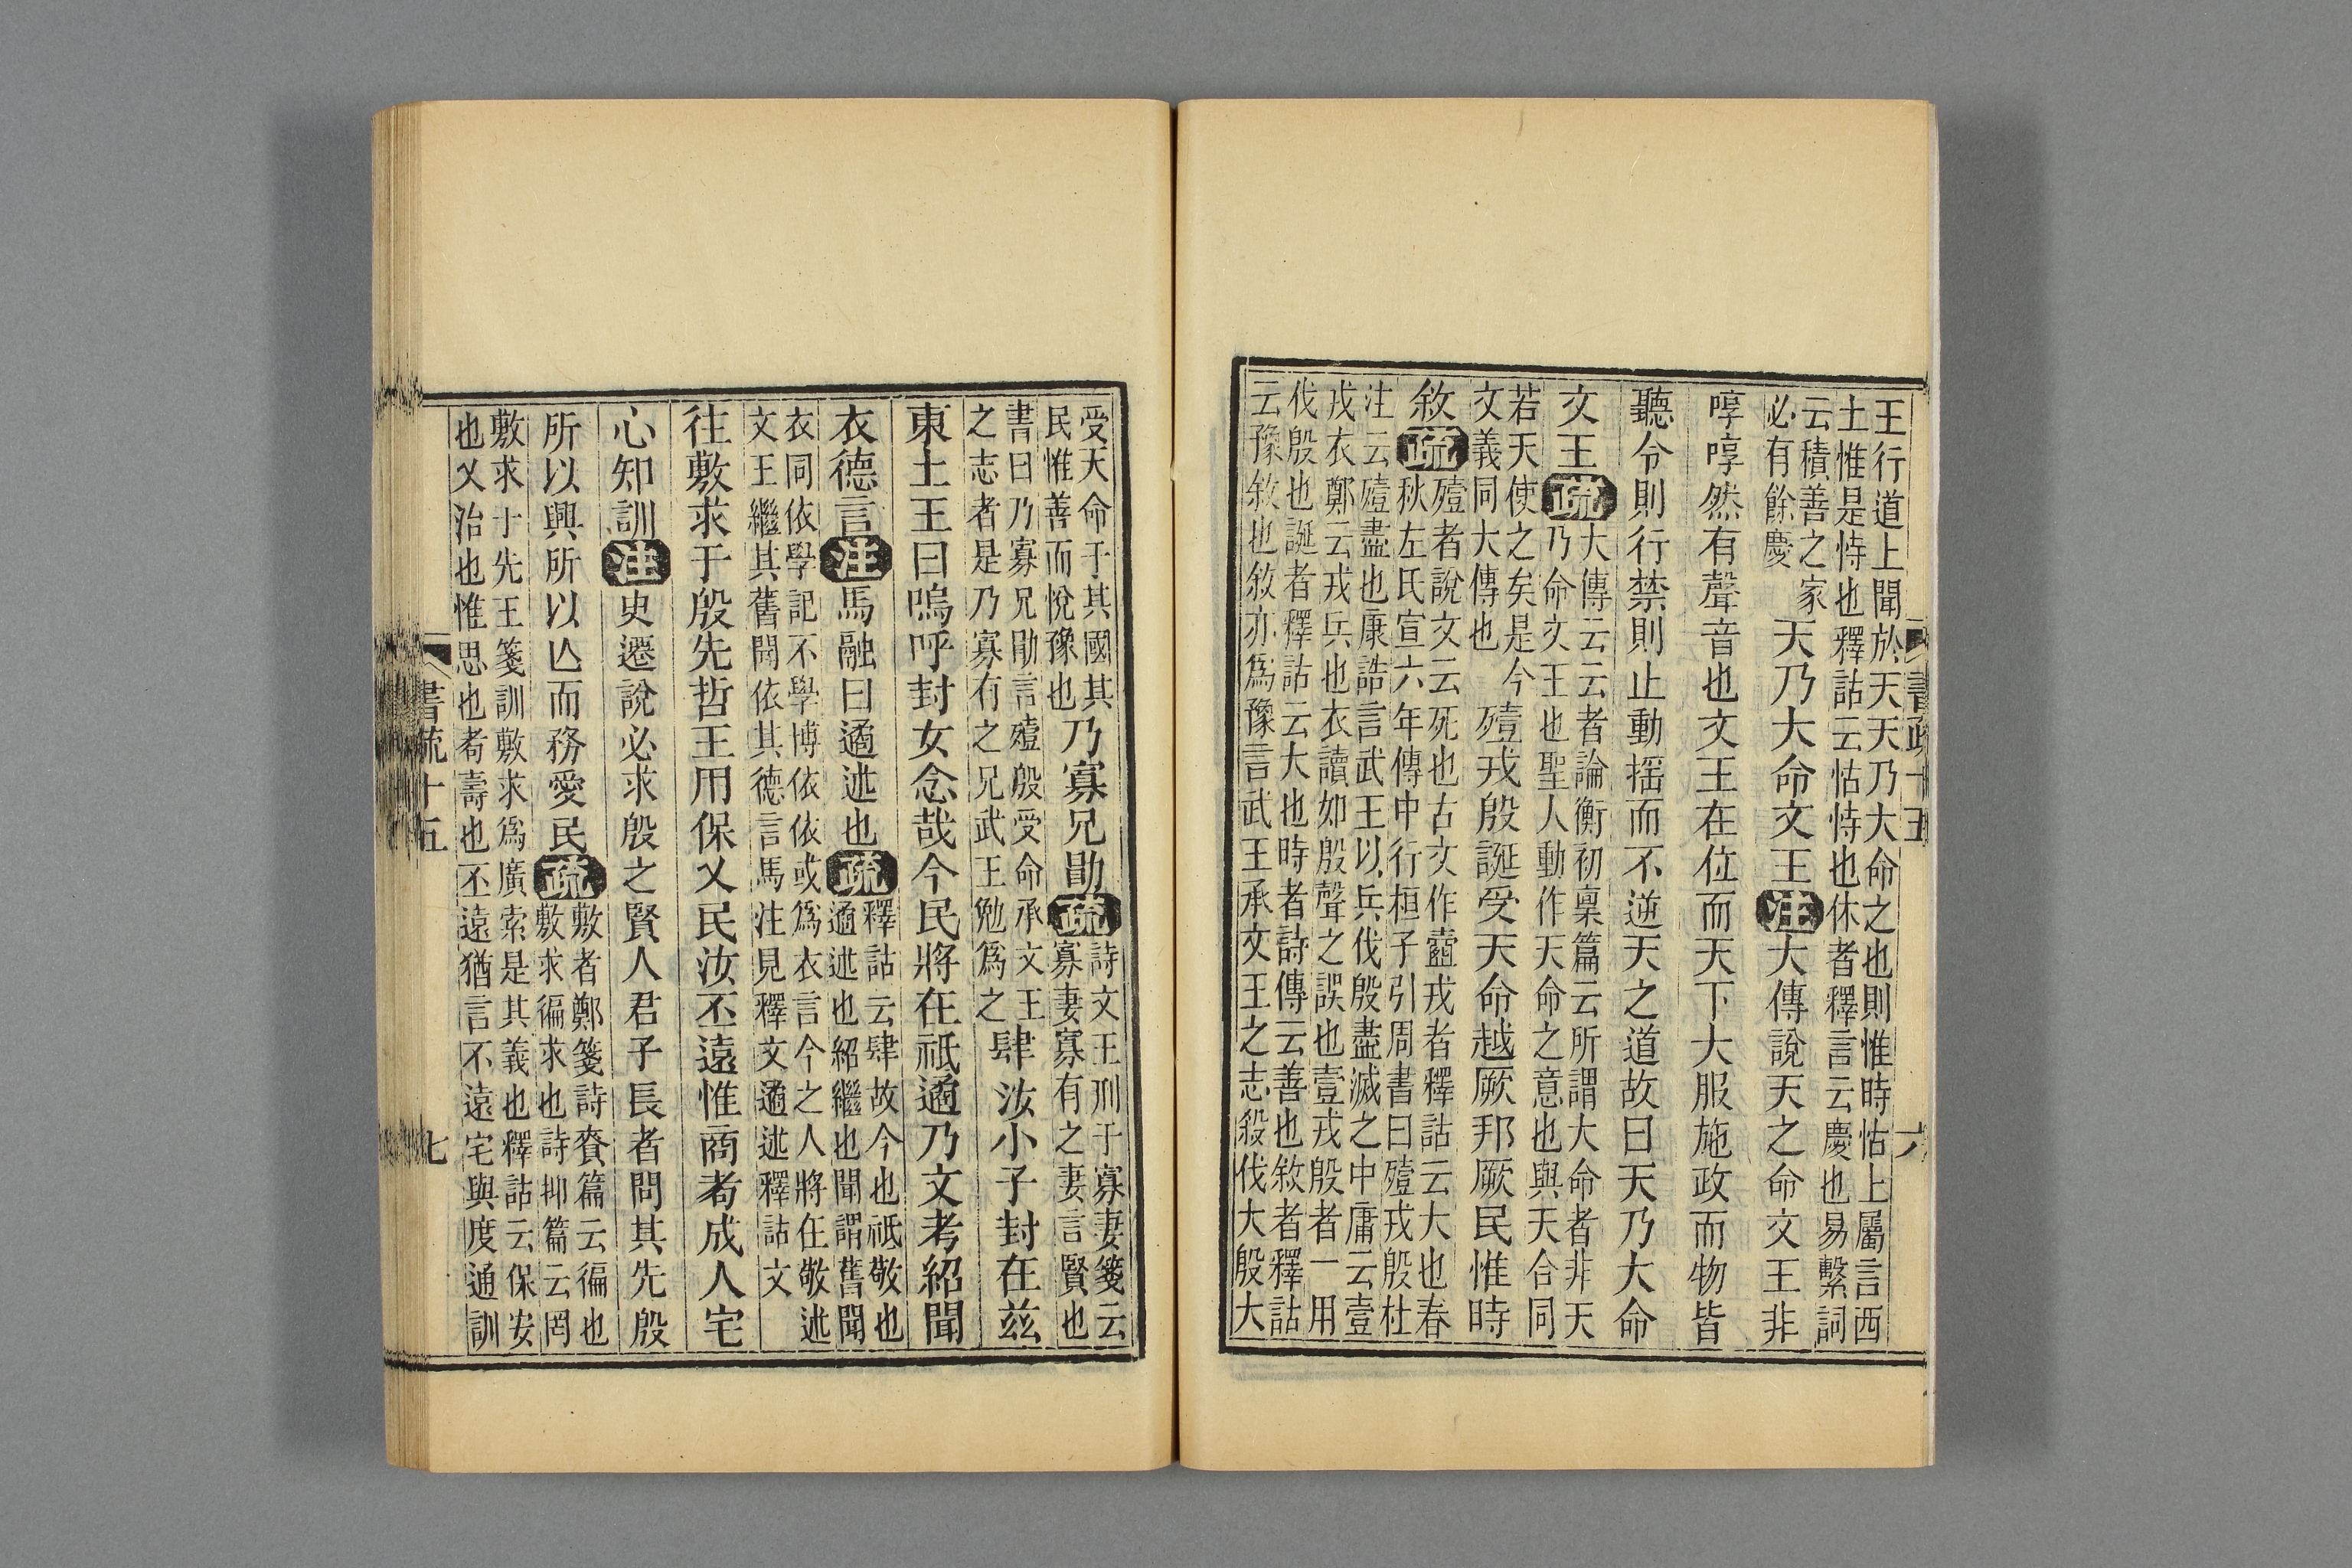 王行道上聞於天天乃大命之也則惟時怙上屬言西
土惟是恃也釋詁云怙恃也休者釋言云慶也易繫詞
云積善之家
必有餘慶
天乃大命文王注大傳說天之命文王非
啍啍然有聲音也文王在位而天下大服施政而物皆
聽令則行禁則止動搖而不逆天之道故曰天乃大命
文王疏
大傳云云者論衡初稟篇云所謂大命者非天
乃命文王也聖人動作天命之意也與天合同
若天使之矣是今
文義同大傳也
殪戎殷誕受天命越厥邦厥民惟時
敘疏
殪者說文云死也古文作㱅戎者釋詁云大也春
秋左氏宣六年傳中行桓子引周書曰殪戎殷杜
注云殪盡也康誥言武王以兵伐殷盡滅之中庸云壹
戎衣鄭云戎兵也衣讀如殷聲之誤也壹戎殷者一用
伐殷也誕者釋詁云大也時者詩傳云善也敘者釋詁
云豫敘也敘亦爲豫言武王承文王之志殺伐大殷大
書疏十五
六
受天命于其國其
民惟善而悅豫也
乃寡兄勖疏
詩文王刑于寡妻箋云
寡妻寡有之妻言賢也
書曰乃寡兄勖言殪殷受命承文王
之志者是乃寡有之兄武王勉爲之
肆汝小子封在茲
東土王曰嗚呼封女念哉今民將在祗遹乃文考紹聞
衣德言注馬融曰遹述也疏
釋詁云肆故今也祗敬也
遹述也紹繼也聞謂舊聞
衣同依學記不學博依依或爲衣言今之人將在敬述
文王繼其舊聞依其德言馬注見釋文遹述釋詁文
往敷求于殷先哲王用保乂民汝丕遠惟商耇成人宅
心知訓注史遷說必求殷之賢人君子長者問其先殷
所以興所以亾而務愛民疏
敷者鄭箋詩賚篇云徧也
敷求徧求也詩抑篇云罔
敷求于先王箋訓敷求爲廣索是其義也釋詁云保安
也乂治也惟思也耇壽也丕遠猶言不遠宅與度通訓
書疏十五
七